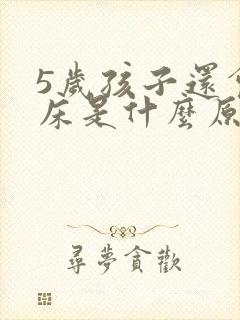 5歲孩子還
床是什麼原
尋夢貪歡